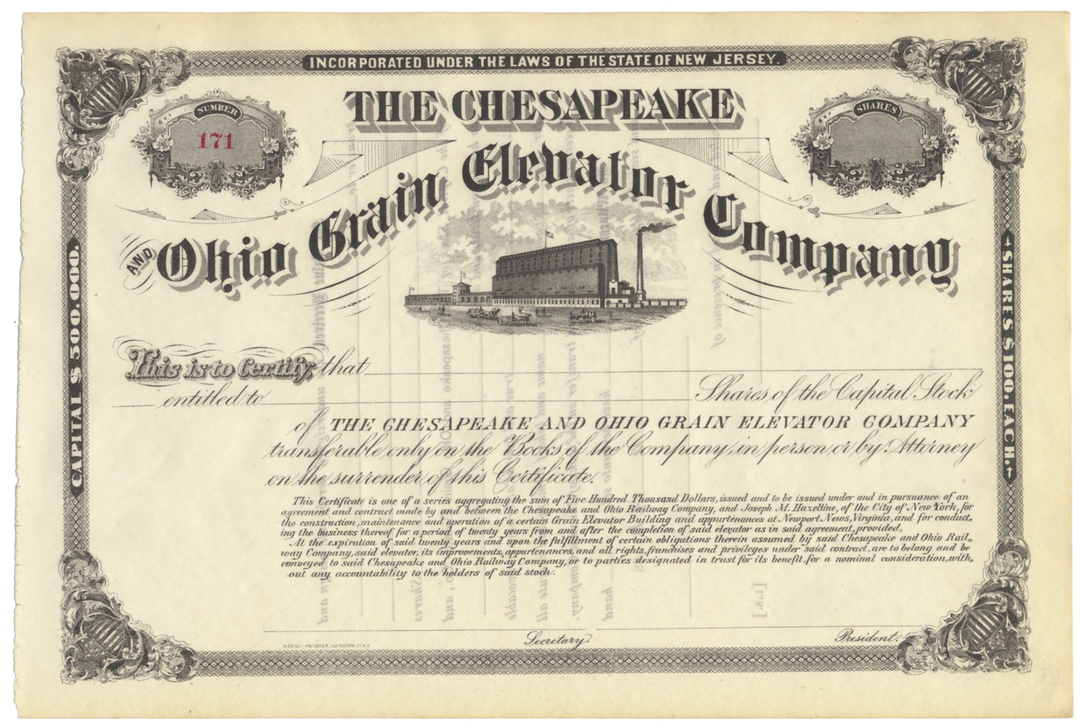 INCORPORATED UNDER THE LAWS OF THE STATE OF NEW JERSEY.
NUMBER
171
SHARES
THE CHESAPEAKE
AND Ohio Grain Elevator Company
CAPITAL $500.000.
SHARES $100. EACH.
This is to Certify, that
entitled to Shares of the Capital Stock
of THE CHESAPEAKE AND OHIO GRAIN ELEVATOR COMPANY
transferable only on the Books of the Company, in person or by Attorney
on the surrender of this Certificate.
This Certificate is one of a series aggregating the sum of Five Hundred Thousand Dollars, issued and to be issued under and in pursuance of an
agreement and contract made by and between the Chesapeake and Ohio Railway Company, and Joseph M. Hazeltine, of the City of New York, for
the construction, maintenance and operation of a certain Grain Elevator Building and appurtenances at Newport News, Virginia, and for conduct,
ing the business thereof for a period of twenty years from and after the completion of said elevator as in said agreement, provided,
At the expiration of said twenty years and upon the fulfillment of certain obligations therein assumed by said Chesapeake and Ohio Rail,
way Company, said elevator, its improvements, appurtenances, and all rights, franchises and privileges under said contract, are to belong and be
conveyed to said Chesapeake and Ohio Railway Company, or to parties designated in trust for its benefit, for a nominal consideration, with,
out any accountability to the holders of said stock.
Secretary.
President.